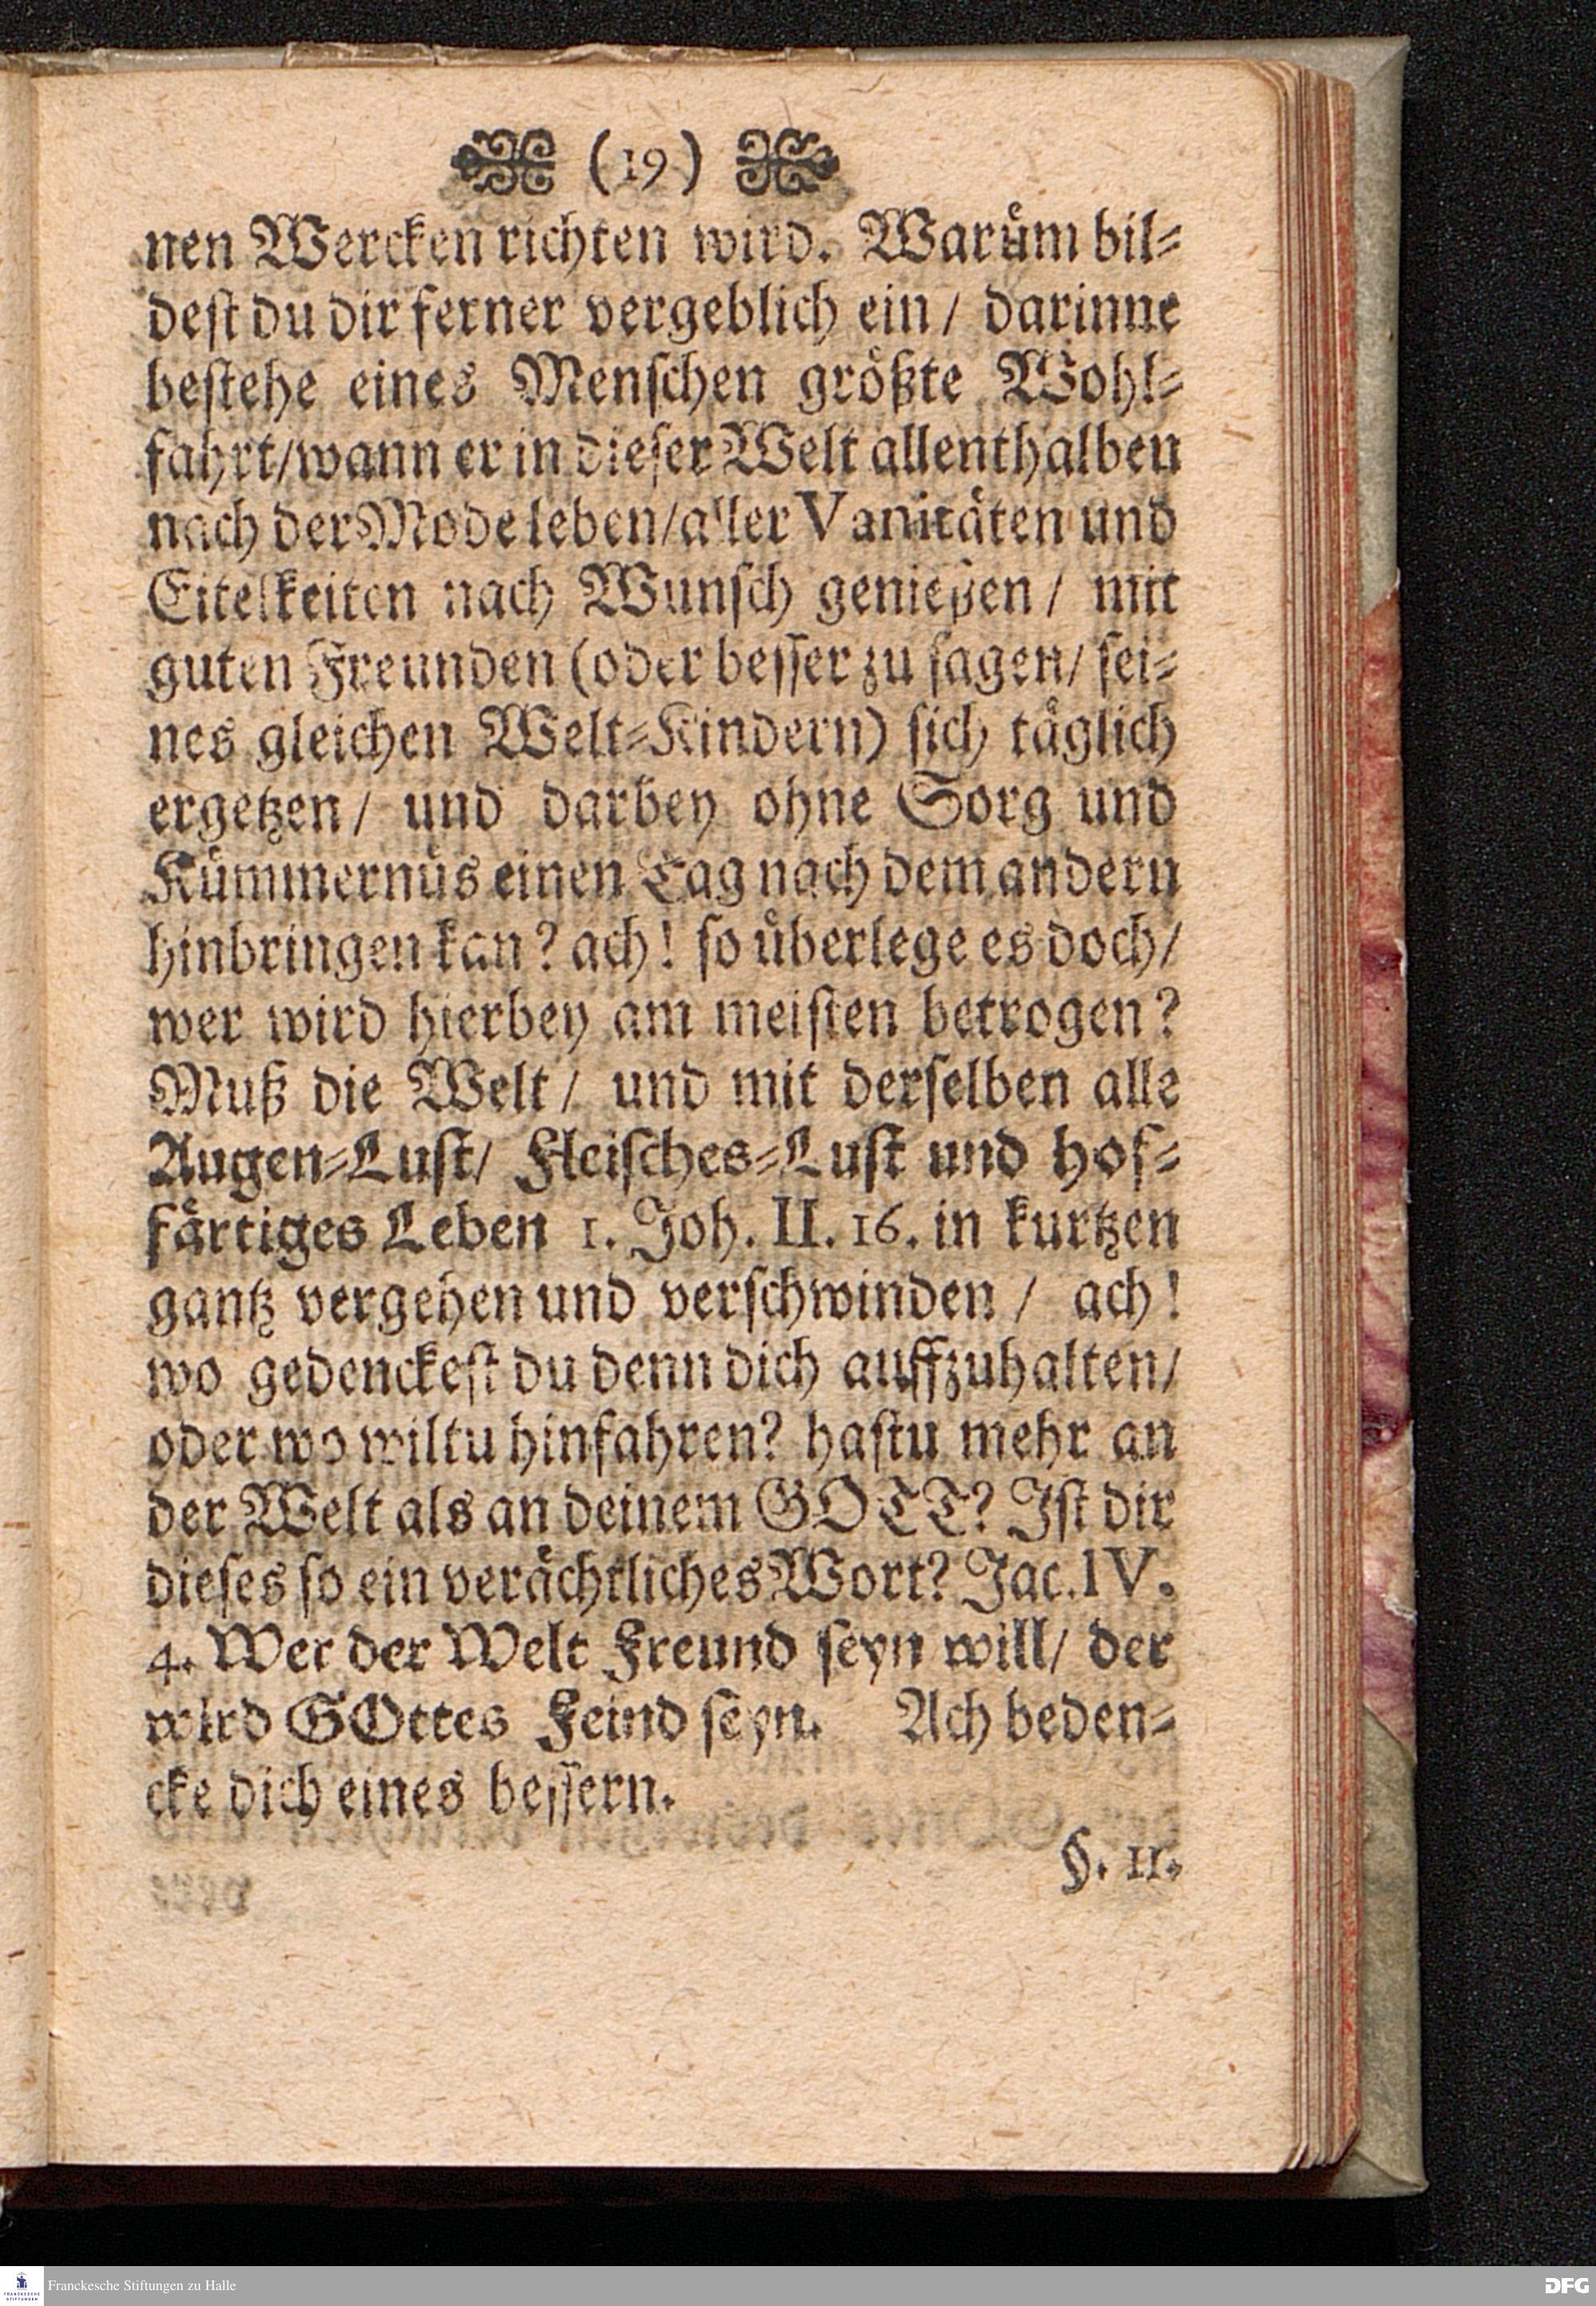 (19)
nen Wercken richten wird. Warům bil-
deſt du dir ferner vergeblich ein / darinne
beſtehe eines Menſchen größte Wohl-
fahrt/wann er in dieſer Welt allenthalben
nach der Mode leben/aller Vanitäten und
Eitelkeiten nach Wunſch genießen / mit
guten Freunden (oder beſſer zu ſagen/ ſei-
nes gleichen Welt-Kindern) ſich täglich
ergetzen / und darbey ohne Sorg und
Kümmernüs einen Tag nach dem andern
hinbringen kan? ach! ſo überlege es doch/
wer wird hierbey am meiſten betrogen?
Muß die Welt / und mit derſelben alle
Augen-Luſt/ Fleiſches-Luſt und hof-
färtiges Leben 1. Joh. II. 16. in kurtzen
gantz vergehen und verſchwinden / ach!
wo gedenckeſt du denn dich auffzuhalten/
oder wo wiltu hinfahren? haſtu mehr an
der Welt als an deinem GOTT? Iſt dir
dieſes ſo ein verächtliches Wort? Jac. IV.
4. Wer der Welt Freund ſeyn will/ der
wird GOttes Feind ſeyn. Ach beden-
cke dich eines beſſern.
§. 11.
Franckesche Stiftungen zu Halle
DFG